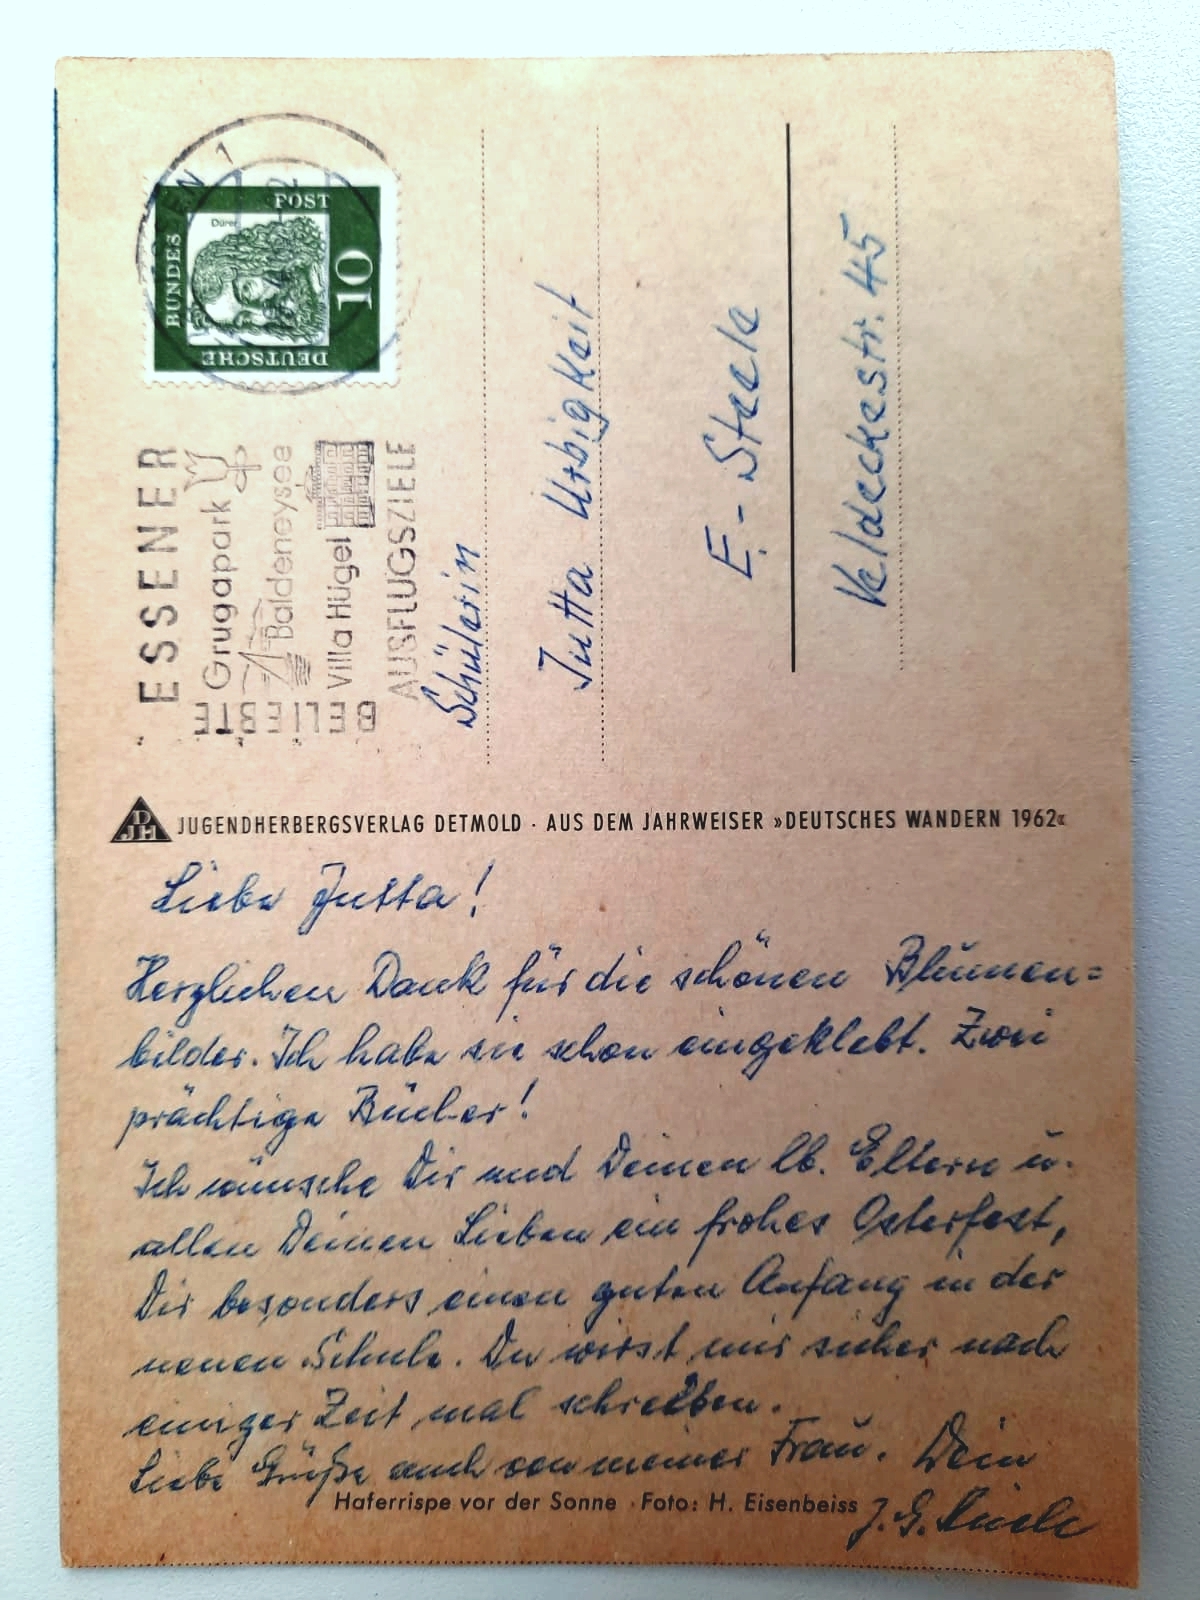 DEUTSCHE
BUNDES
POST
10
Dürer
ESSEN 1
BELIEBTE
ESSENER
Grugapark
Baldeneysee
Villa Hügel
AUSFLUGSZIELE
Schülerin
Jutta Urbigkeit
E.-Steele
Veldeckestr. 45
DJH
JUGENDHERBERGSVERLAG DETMOLD · AUS DEM JAHRWEISER »DEUTSCHES WANDERN 1962«
Liebe Jutta!
Herzlichen Dank für die schönen Blumen=
bilder. Ich habe sie schon eingeklebt. Zwei
prächtige Bücher!
Ich wünsche Dir und Deinen lb. Eltern u.
allen Deinen Lieben ein frohes Osterfest,
Dir besonders einen guten Anfang in der
neuen Schule. Du wirst mir sicher nach
einiger Zeit mal schreiben.
Liebe Grüße auch von meiner Frau. Dein
J. G.
Haferrispe vor der Sonne · Foto: H. Eisenbeiss